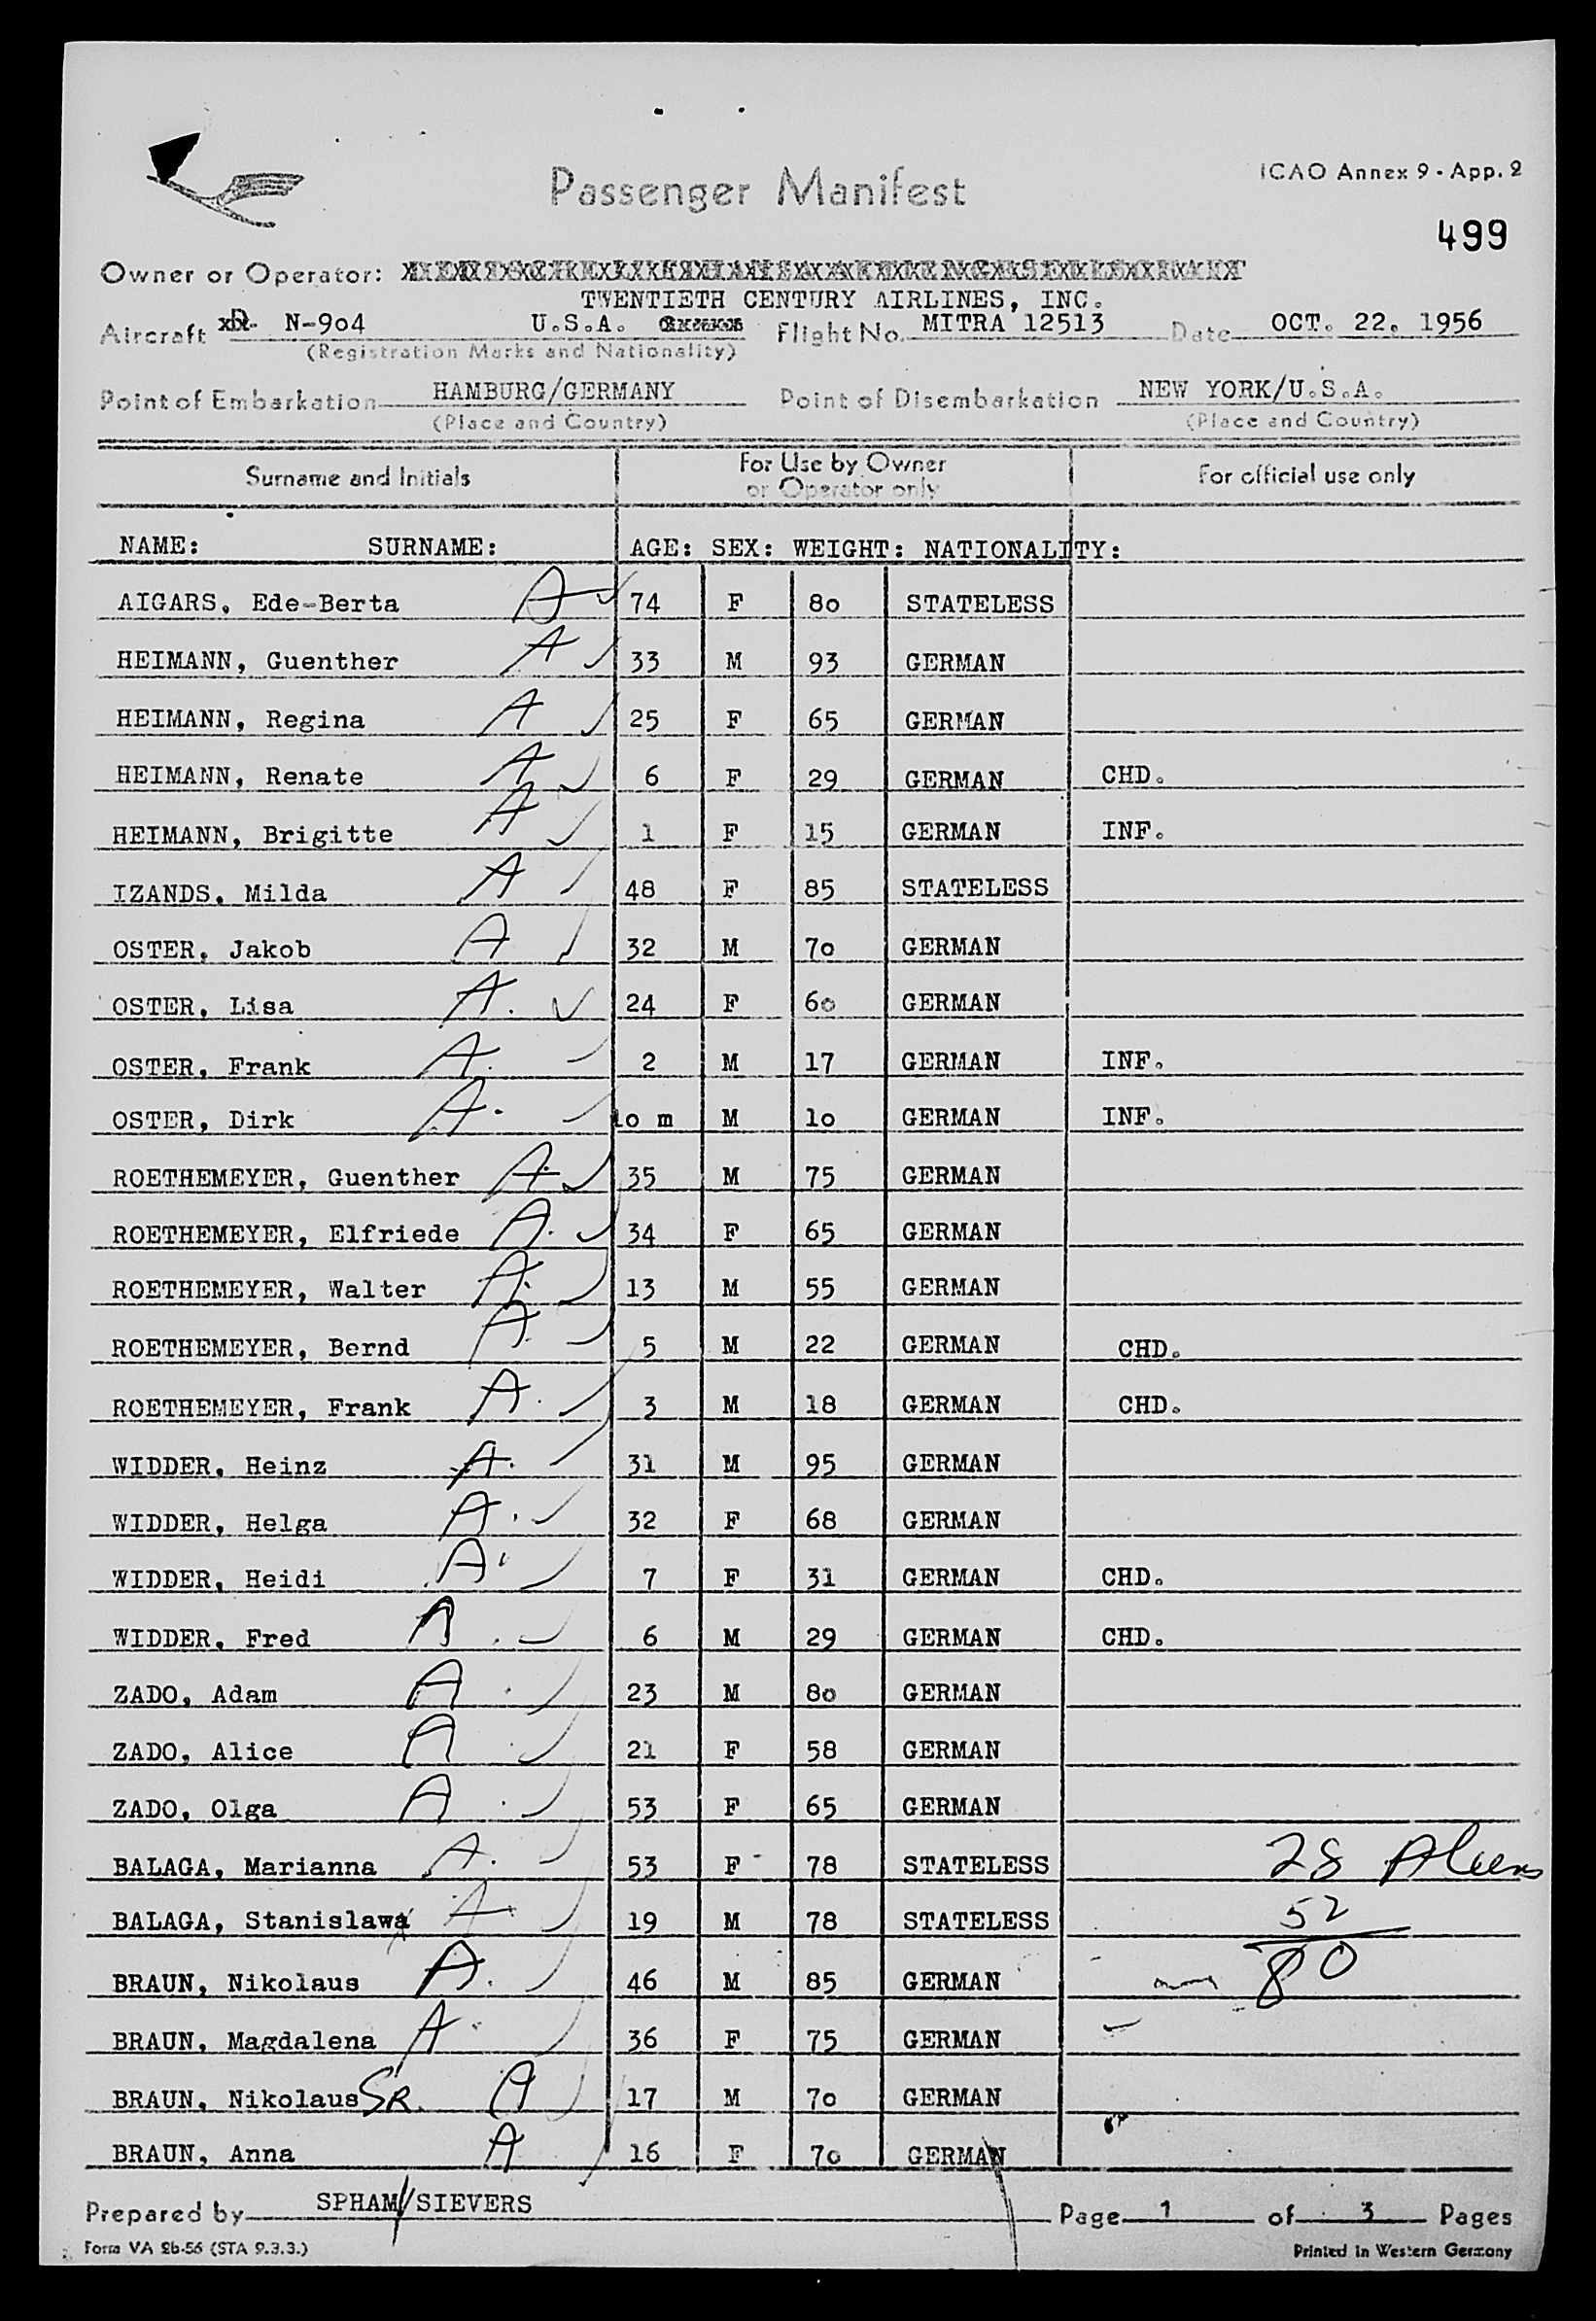 Passenger Manifest
ICAO Annex 9 - App. 2
499
Owner or Operator:
TWENTIETH CENTURY AIRLINES, INC.
Aircraft N-9o4 U.S.A. Flight No. MITRA 12513 Date OCT. 22, 1956
(Registration Marks and Nationality)
Point of Embarkation HAMBURG/GERMANY Point of Disembarkation NEW YORK/U.S.A.
(Place and Country) (Place and Country)
Surname and Initials For Use by Owner or Operator only For official use only
NAME: SURNAME: AGE: SEX: WEIGHT: NATIONALITY:
AIGARS, Ede-Berta A 74 F 8o STATELESS
HEIMANN, Guenther A 33 M 93 GERMAN
HEIMANN, Regina A 25 F 65 GERMAN
HEIMANN, Renate A 6 F 29 GERMAN CHD.
HEIMANN, Brigitte A 1 F 15 GERMAN INF.
IZANDS, Milda A 48 F 85 STATELESS
OSTER, Jakob A 32 M 7o GERMAN
OSTER, Lisa A. 24 F 6o GERMAN
OSTER, Frank A. 2 M 17 GERMAN INF.
OSTER, Dirk A. 1o m M 1o GERMAN INF.
ROETHEMEYER, Guenther A. 35 M 75 GERMAN
ROETHEMEYER, Elfriede A. 34 F 65 GERMAN
ROETHEMEYER, Walter A. 13 M 55 GERMAN
ROETHEMEYER, Bernd A. 5 M 22 GERMAN CHD.
ROETHEMEYER, Frank A. 3 M 18 GERMAN CHD.
WIDDER, Heinz A. 31 M 95 GERMAN
WIDDER, Helga A. 32 F 68 GERMAN
WIDDER, Heidi A. 7 F 31 GERMAN CHD.
WIDDER, Fred A. 6 M 29 GERMAN CHD.
ZADO, Adam A. 23 M 8o GERMAN
ZADO, Alice A. 21 F 58 GERMAN
ZADO, Olga A. 53 F 65 GERMAN
BALAGA, Marianna A. 53 F 78 STATELESS 28 Aliens
BALAGA, Stanislawa A 19 M 78 STATELESS 52
BRAUN, Nikolaus A. 46 M 85 GERMAN 80
BRAUN, Magdalena A. 36 F 75 GERMAN
BRAUN, Nikolaus SR. A 17 M 7o GERMAN
BRAUN, Anna A 16 F 7o GERMAN
Prepared by SPHAM/SIEVERS Page 1 of 3 Pages
Form VA 2b-56 (STA 9.3.3.) Printed in Western Germany